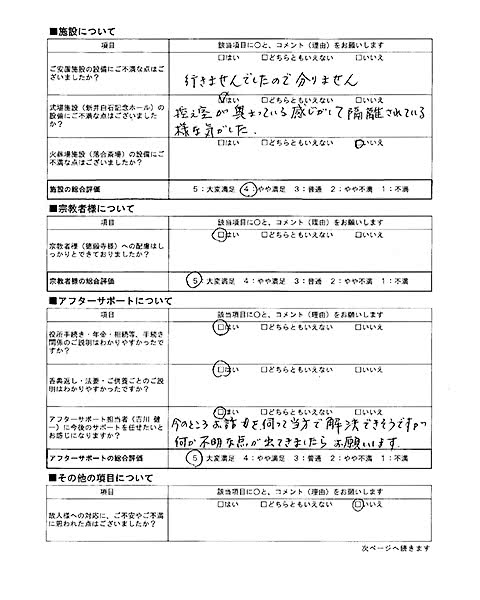 ■施設について
項目 該当項目に○と、コメント（理由）をお願いします
ご安置施設の設備にご不満な点はございましたか？ □はい □どちらともいえない □いいえ
行きませんでしたので分りません
式場施設（新井白石記念ホール）の設備にご不満な点はございましたか？ □はい □どちらともいえない □いいえ
控え室が奥まっている感じがして隔離されている
様な気がした.
火葬場施設（落合斎場）の設備にご不満な点はございましたか？ □はい □どちらともいえない □いいえ
施設の総合評価 5：大変満足 4：やや満足 3：普通 2：やや不満 1：不満
■宗教者様について
項目 該当項目に○と、コメント（理由）をお願いします
宗教者様（徳願寺様）への配慮はしっかりとできておりましたか？ □はい □どちらともいえない □いいえ
宗教者様の総合評価 5：大変満足 4：やや満足 3：普通 2：やや不満 1：不満
■アフターサポートについて
項目 該当項目に○と、コメント（理由）をお願いします
役所手続き・年金・相続等、手続き関係のご説明はわかりやすかったですか？ □はい □どちらともいえない □いいえ
香典返し・法要・ご供養ごとのご説明はわかりやすかったですか？ □はい □どちらともいえない □いいえ
アフターサポート担当者（吉川 健一）に今後のサポートを任せたいとお感じになりますか？ □はい □どちらともいえない □いいえ
今のところお話を伺って当方で解決できそうですが
何か不明な点が出てきましたらお願いします.
アフターサポートの総合評価 5：大変満足 4：やや満足 3：普通 2：やや不満 1：不満
■その他の項目について
項目 該当項目に○と、コメント（理由）をお願いします
故人様への対応に、ご不安やご不満に思われた点はございましたか？ □はい □どちらともいえない □いいえ
次ページへ続きます